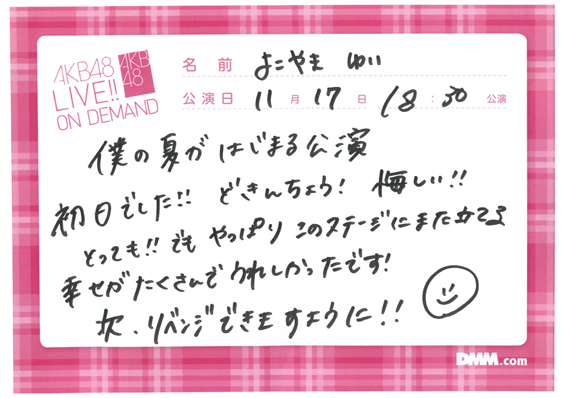 AKB48
LIVE!!
ON DEMAND
AKB
48
名前 よこやま ゆい
公演日 11月17日 18:30公演
僕の夏がはじまる公演
初日でした!! どきんちょう! 悔しい!!
とっても!! でも やっぱり このステージにまた立てる
幸せがたくさんで うれしかったです!
次、リベンジできますように!!
DMM.com